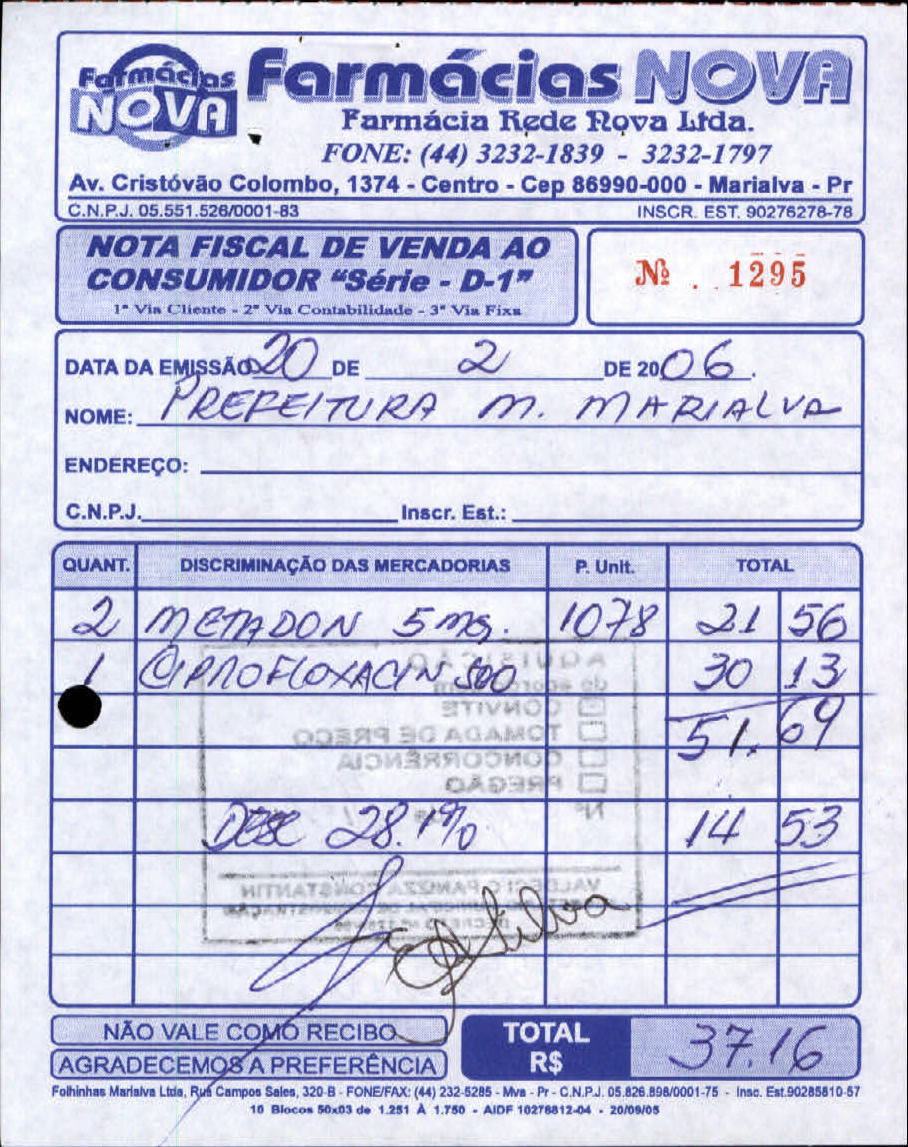 Farmácias NOVA
Farmácias NOVA
Farmácia Rede Nova Ltda.
FONE: (44) 3232-1839 - 3232-1797
Av. Cristóvão Colombo, 1374 - Centro - Cep 86990-000 - Marialva - Pr
C.N.P.J. 05.551.526/0001-83 INSCR. EST. 90276278-78
NOTA FISCAL DE VENDA AO
CONSUMIDOR “Série - D-1”
1ª Via Cliente - 2ª Via Contabilidade - 3ª Via Fixa
Nº . 1295
DATA DA EMISSÃO 20 DE 2 DE 2006.
NOME: PREFEITURA M. MARIALVA
ENDEREÇO:
C.N.P.J. Inscr. Est.:
QUANT. DISCRIMINAÇÃO DAS MERCADORIAS P. Unit. TOTAL
2 METADON 5 mg. 1078 21 56
1 CIPROFLOXACIN 500 30 13
51.69
DESC 28.1% 14 53
AQUISIÇÃO
de acordo com
CONVITE
TOMADA DE PREÇO
CONCORRÊNCIA
PREGÃO
Nº
Silva
NÃO VALE COMO RECIBO
AGRADECEMOS A PREFERÊNCIA
TOTAL
R$ 37.16
Folhinhas Marialva Ltda, Rua Campos Sales, 320-B - FONE/FAX: (44) 232-5285 - Mva - Pr - C.N.P.J. 05.826.898/0001-75 - Insc. Est.90285810-57
10 Blocos 50x03 de 1.251 À 1.750 - AIDF 10276812-04 - 20/09/05